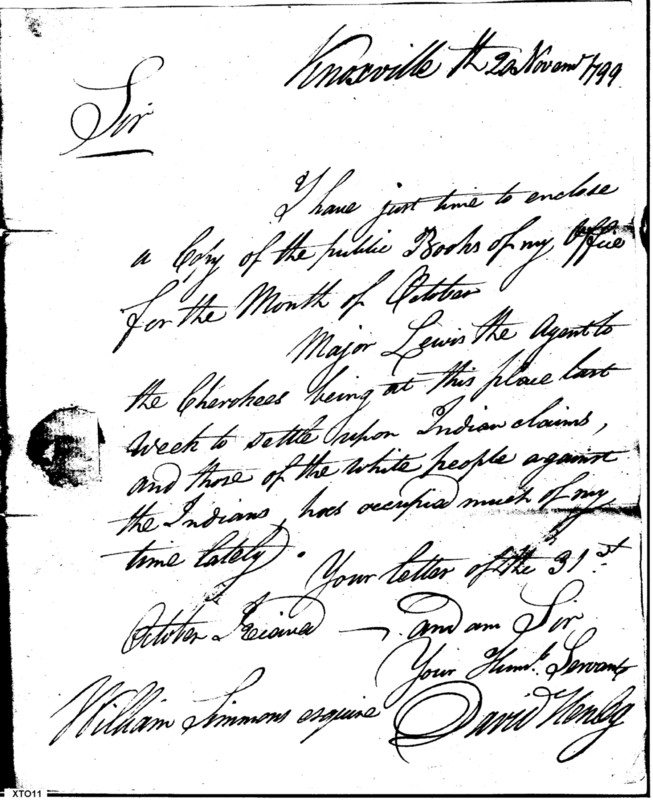 Knoxville th 20 Novemr 1799
Sir
I have just time to enclose
a Copy of the public Books of my Office
for the Month of October
Major Lewis the Agent to
the Cherokees being at this place last
Week to settle upon Indian claims,
and those of the white people against
the Indians, has occupied much of my
time lately.
Your letter of the 31st
October Received — and am Sir
Your Humb. Servant
William Simmons esquire David Henley
XTO11